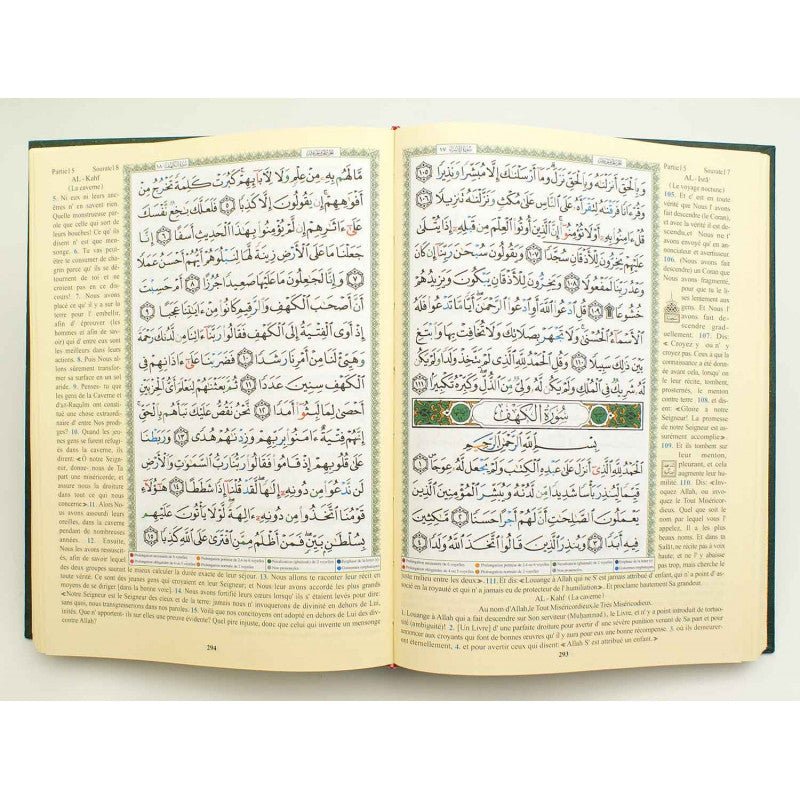 سُورَةُ الإِسْرَاءِ ١٧
وَبِالْحَقِّ أَنزَلْنَاهُ وَبِالْحَقِّ نَزَلَ وَمَا أَرْسَلْنَاكَ إِلَّا مُبَشِّرًا وَنَذِيرًا ١٠٥
وَقُرْءَانًا فَرَقْنَاهُ لِتَقْرَأَهُ عَلَى النَّاسِ عَلَى مُكْثٍ وَنَزَّلْنَاهُ تَنزِيلًا ١٠٦
قُلْ ءَامِنُوا بِهِ أَوْ لَا تُؤْمِنُوا إِنَّ الَّذِينَ أُوتُوا الْعِلْمَ مِن قَبْلِهِ إِذَا يُتْلَى
عَلَيْهِمْ يَخِرُّونَ لِلْأَذْقَانِ سُجَّدًا ١٠٧ وَيَقُولُونَ سُبْحَانَ رَبِّنَا إِن كَانَ
وَعْدُ رَبِّنَا لَمَفْعُولًا ١٠٨ وَيَخِرُّونَ لِلْأَذْقَانِ يَبْكُونَ وَيَزِيدُهُمْ
خُشُوعًا ١٠٩ قُلِ ادْعُوا اللَّهَ أَوِ ادْعُوا الرَّحْمَنَ أَيًّا مَّا تَدْعُوا فَلَهُ
الْأَسْمَاءُ الْحُسْنَى وَلَا تَجْهَرْ بِصَلَاتِكَ وَلَا تُخَافِتْ بِهَا وَابْتَغِ
بَيْنَ ذَلِكَ سَبِيلًا ١١٠ وَقُلِ الْحَمْدُ لِلَّهِ الَّذِي لَمْ يَتَّخِذْ وَلَدًا وَلَمْ يَكُن
لَّهُ شَرِيكٌ فِي الْمُلْكِ وَلَمْ يَكُن لَّهُ وَلِيٌّ مِّنَ الذُّلِّ وَكَبِّرْهُ تَكْبِيرًا ١١١
سُورَةُ الْكَهْفِ
بِسْمِ اللَّهِ الرَّحْمَنِ الرَّحِيمِ
الْحَمْدُ لِلَّهِ الَّذِي أَنزَلَ عَلَى عَبْدِهِ الْكِتَابَ وَلَمْ يَجْعَل لَّهُ عِوَجًا ١
قَيِّمًا لِّيُنذِرَ بَأْسًا شَدِيدًا مِّن لَّدُنْهُ وَيُبَشِّرَ الْمُؤْمِنِينَ الَّذِينَ
يَعْمَلُونَ الصَّالِحَاتِ أَنَّ لَهُمْ أَجْرًا حَسَنًا ٢ مَّاكِثِينَ
فِيهِ أَبَدًا ٣ وَيُنذِرَ الَّذِينَ قَالُوا اتَّخَذَ اللَّهُ وَلَدًا ٤
Partie15 Sourate17
AL - Isrâ'
(Le voyage nocturne)
105. Et c'est en toute
vérité que Nous l'avons fait
descendre (le Coran),
et avec la vérité il est
descendu, et Nous ne
t'avons envoyé qu'en an-
nonciateur et avertisseur.
106. (Nous avons fait
descendre) un Coran que
Nous avons fragmenté,
pour que tu le li-
ses lentement aux
gens. Et Nous
l'avons fait des-
cendre grad-
uellement. 107. Dis:
«Croyez y ou n' y
croyez pas. Ceux à qui la
connaissance a été donnée
avant cela, lorsqu' on le
leur récite, tombent,
prosternés, le menton
contre terre. 108. et di-
sent: «Gloire à notre
Seigneur! La promesse
de notre Seigneur est as-
surément accomplie».
109. Et ils tombent sur
leur menton,
pleurant, et cela
augmente leur
humilité.
110. Dis: «Invo-
quez Allah, ou invoquez
le Tout Miséricordieux.
Quel que soit le nom
par lequel vous l'appel-
ez, Il a les plus beaux
noms. Et dans ta Salât,
ne récite pas à voix hau-
te; et ne l'y abaisse
pas trop, mais cherche le
juste milieu entre les deux». 111. Et dis: «Louange à Allah qui ne S' est jamais attribué d' enfant, qui n' a point d' as-
socié en la royauté et qui n' a jamais eu de protecteur de l'humiliation». Et proclame hautement Sa grandeur.
AL - Kahf (La caverne)
Au nom d'Allah, le Tout Miséricordieux, le Très Miséricordieux.
1. Louange à Allah qui a fait descendre sur Son serviteur (Muhammad), le Livre, et n' y a point introduit de tortuo-
sité (ambiguïté)! 2. [Un Livre] d' une parfaite droiture pour avertir d' une sévère punition venant de Sa part et pour
annoncer aux croyants qui font de bonnes œuvres qu' il y aura pour eux une bonne récompense. 3. où ils demeurer-
ont éternellement, 4. et pour avertir ceux qui disent: «Allah S' est attribué un enfant.»
293
سُورَةُ الْكَهْفِ ١٨
مَّا لَهُم بِهِ مِنْ عِلْمٍ وَلَا لِآبَائِهِمْ كَبُرَتْ كَلِمَةً تَخْرُجُ مِنْ
أَفْوَاهِهِمْ إِن يَقُولُونَ إِلَّا كَذِبًا ٥ فَلَعَلَّكَ بَاخِعٌ نَّفْسَكَ
عَلَى ءَاثَارِهِمْ إِن لَّمْ يُؤْمِنُوا بِهَذَا الْحَدِيثِ أَسَفًا ٦ إِنَّا
جَعَلْنَا مَا عَلَى الْأَرْضِ زِينَةً لَّهَا لِنَبْلُوَهُمْ أَيُّهُمْ أَحْسَنُ عَمَلًا
٧ وَإِنَّا لَجَاعِلُونَ مَا عَلَيْهَا صَعِيدًا جُرُزًا ٨ أَمْ حَسِبْتَ
أَنَّ أَصْحَابَ الْكَهْفِ وَالرَّقِيمِ كَانُوا مِنْ ءَايَاتِنَا عَجَبًا ٩
إِذْ أَوَى الْفِتْيَةُ إِلَى الْكَهْفِ فَقَالُوا رَبَّنَا ءَاتِنَا مِن لَّدُنكَ رَحْمَةً
وَهَيِّئْ لَنَا مِنْ أَمْرِنَا رَشَدًا ١٠ فَضَرَبْنَا عَلَى ءَاذَانِهِمْ فِي
الْكَهْفِ سِنِينَ عَدَدًا ١١ ثُمَّ بَعَثْنَاهُمْ لِنَعْلَمَ أَيُّ الْحِزْبَيْنِ
أَحْصَى لِمَا لَبِثُوا أَمَدًا ١٢ نَّحْنُ نَقُصُّ عَلَيْكَ نَبَأَهُم بِالْحَقِّ
إِنَّهُمْ فِتْيَةٌ ءَامَنُوا بِرَبِّهِمْ وَزِدْنَاهُمْ هُدًى ١٣ وَرَبَطْنَا
عَلَى قُلُوبِهِمْ إِذْ قَامُوا فَقَالُوا رَبُّنَا رَبُّ السَّمَاوَاتِ وَالْأَرْضِ
لَن نَّدْعُوَا مِن دُونِهِ إِلَهًا لَّقَدْ قُلْنَا إِذًا شَطَطًا ١٤ هَؤُلَاءِ
قَوْمُنَا اتَّخَذُوا مِن دُونِهِ ءَالِهَةً لَّوْلَا يَأْتُونَ عَلَيْهِم
بِسُلْطَانٍ بَيِّنٍ فَمَنْ أَظْلَمُ مِمَّنِ افْتَرَى عَلَى اللَّهِ كَذِبًا ١٥
Partie15 Sourate18
AL - Kahf
(La caverne)
5. Ni eux ni leurs anc-
êtres n' en savent rien.
Quelle monstrueuse pa-
role que celle qui sort
de leurs bouches! Ce qu' ils
disent n' est que men-
songe. 6. Tu vas peut-
être te consumer de cha-
grin parce qu' ils se
détournent de toi et ne
croient pas en ce dis-
cours! 7. Nous avons
placé ce qu' il y a sur
la terre pour l' embellir,
afin d' éprouver (les
hommes afin de savoir)
qui d' entre eux sont les
meilleurs dans leurs
actions. 8. Puis Nous al-
lons sûrement transfor-
mer sa surface en un sol
aride. 9. Penses- tu que
les gens de la Caverne et
d'ar-Raqîm ont constit-
ué une chose extraordi-
naire d' entre Nos prod-
iges? 10. Quand les jeu-
nes gens se furent réfugi-
és dans la caverne, ils
dirent: «Ô notre Seign-
eur, donne- nous de Ta
part une miséricorde,
et assure nous la droiture
dans tout ce qui nous
concerne». 11. Alors No-
us avons assourdi leurs
oreilles, dans la caverne
pendant de nombreuses
années. 12. Ensuite,
Nous les avons ressuscit-
és, afin de savoir lequel
des deux groupes saurait le mieux calculer la durée exacte de leur séjour. 13. Nous allons te raconter leur récit en
toute vérité. Ce sont des jeunes gens qui croyaient en leur Seigneur; et Nous leur avons accordé les plus grands
moyens de se diriger [dans la bonne voie]. 14. Nous avons fortifié leurs cœurs lorsqu' ils s' étaient levés pour dire:
«Notre Seigneur est le Seigneur des cieux et de la terre: jamais nous n' invoquerons de divinité en dehors de Lui,
sans quoi, nous transgresserions dans nos paroles. 15. Voilà que nos concitoyens ont adopté en dehors de Lui des divini-
tés. Que n' apportent- ils sur elles une preuve évidente? Quel pire injuste, donc que celui qui invente un mensonge
contre Allah?
294